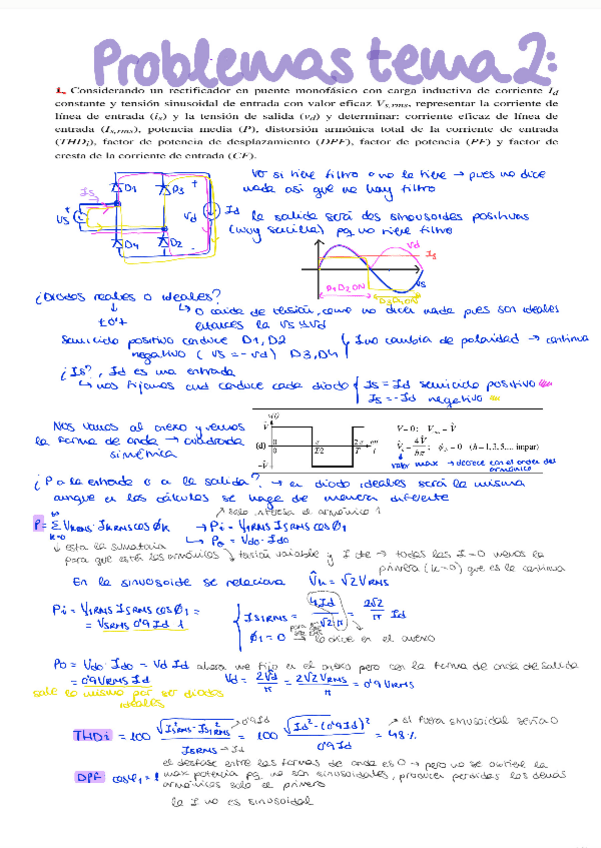 Problemas tema 2:
1. Considerando un rectificador en puente monofásico con carga inductiva de corriente Id
constante y tensión sinusoidal de entrada con valor eficaz Vs,rms, representar la corriente de
línea de entrada (is) y la tensión de salida (vd) y determinar: corriente eficaz de línea de
entrada (Is,rms), potencia media (P), distorsión armónica total de la corriente de entrada
(THDi), factor de potencia de desplazamiento (DPF), factor de potencia (PF) y factor de
cresta de la corriente de entrada (CF).
Vo si tiene filtro o no lo tiene → pues no dice
nada así que no hay filtro
Is D1 D3 + Id
Vs + Vd
D4 D2 -
la salida será dos sinusoides positivas
(muy sencilla) pq no tiene filtro
Vd
Is
Vs
D1 D2 ON
D3 D4 ON
¿Diodos reales o ideales?
↳ o caida de tensión, como no dice nada pues son ideales
entonces la Vs = Vd
Semiciclo positivo conduce D1, D2
negativo (Vs = -Vd) D3, D4
Id no cambia de polaridad → continua
¿Is?, Id es una entrada
↳ nos fijamos cual conduce cada diodo
Is = Id semiciclo positivo
Is = -Id negativo
Nos vamos al anexo y vemos
la forma de onda → cuadrada
simétrica
v(t)
(d)
V=0; 
(h=1,3,5,... impar)
valor max → decrece con el orden del
armónico
¿P a la entrada o a la salida? → en diodo ideales será la misma
aunque en los cálculos se haga de manera diferente
↑ solo interesa el armónico 1
P = Σ VkRMS · IkRMS cos Øk → Pi = V1RMS IS1RMS cos Ø1
k=0
↳ Po = Vdo · Ido
↓ esta la sumatoria
para que estén los armónicos
↓ tensión variable y I cte → todas las I=0 menos la
primera (k=0) que es la continua
En la sinusoide se relaciona V̂k = √2 VRMS
Pi = V1RMS IS1RMS cos Ø1 =
= VSRMS 0'9 Id 1
IS1RMS = 4Id / √2 π = 2√2 / π Id
Ø1 = 0 → lo dice en el anexo
Po = Vdo · Ido = Vd Id ahora me fijo en el anexo pero con la forma de onda de salida
= 0'9 VRMS Id
Vd = 2V̂d / π = 2√2 VRMS / π = 0'9 VRMS
sale lo mismo por ser diodos
ideales
THDi = 100 √(I²SRMS - I²S1RMS) / IS1RMS = 100 √(Id² - (0'9Id)²) / 0'9Id = 48%
→ 0'9Id
→ si fuera sinusoidal sería 0
el desfase entre las formas de onda es 0 → pero no se obtiene la
DPF cos φ1 = 1
max potencia pq no son sinusoidales, producen perdidas los demás
armónicos solo el primero
la I no es sinusoidal